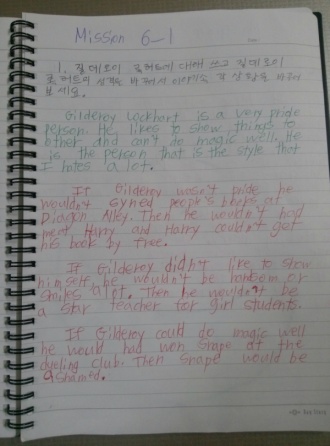 Misson 6-1
1. 길데로이 록허트에 대해 쓰고 길데로이
록허트의 성격을 바꿔서 이야기의 각 상황을 바꾸어
보세요.
Gilderoy Lockhart is a very pride
person. He likes to show things to
other and can't do magic well. He
is the person that is the style that
I hates a lot.
If Gilderoy wasn't pride he
wouldn't syned people's books at
Diagon Alley. Then he wouldn't had
meat Harry and Harry couldn't got
his book by free.
If Gilderoy didn't like to show
himself he wouldn't be handsom or
smiles a lot. Then he wouldn't be
a star teacher for girl students.
If Gilderoy could do magic well
he would had won snape at the
dueling club. Then snape would be
ashamed.